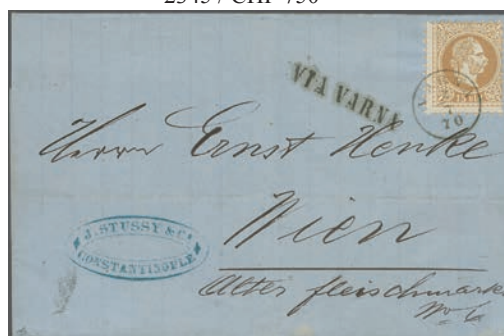 23451 CHF 750
VIA VARNA
15
70
Herrn Ernst Henke
Wien
J. STUSSY & Cⁱᵉ
CONSTANTINOPLE
Alter fleischmarkt
No 6